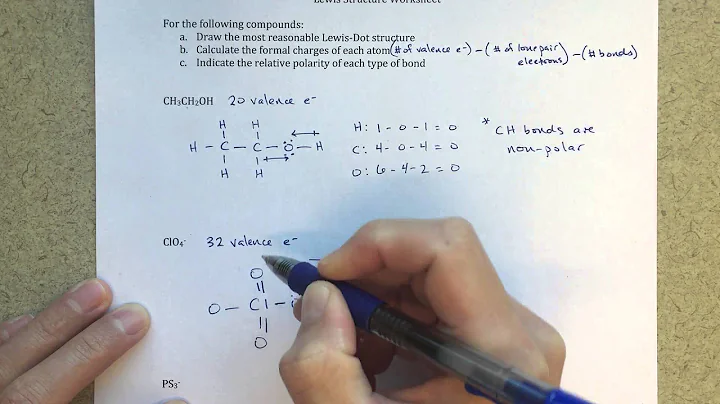 Lewis Structure Worksheet
For the following compounds:
a. Draw the most reasonable Lewis-Dot structure
b. Calculate the formal charges of each atom (# of valence e-) - (# of lone pair electrons) - (# bonds)
c. Indicate the relative polarity of each type of bond
CH3CH2OH 20 valence e-
H H
H - C - C - O - H
H H
H: 1 - 0 - 1 = 0
C: 4 - 0 - 4 = 0
O: 6 - 4 - 2 = 0
* CH bonds are
non-polar
ClO4- 32 valence e-
O
O - Cl -
O
PS3-